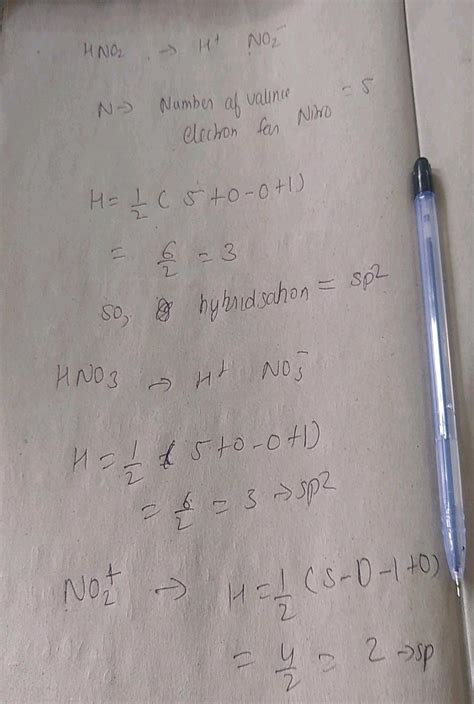 HNO2 → H+ NO2-
N → Number of valince = 5
electron for Nitro
H = 1/2 ( 5 + 0 - 0 + 1)
= 6/2 = 3
so, hybridsation = sp2
HNO3 → H+ NO3-
H = 1/2 ( 5 + 0 - 0 + 1)
= 6/2 = 3 → sp2
NO2+ → H = 1/2 (5 - 0 - 1 + 0)
= 4/2 = 2 → sp